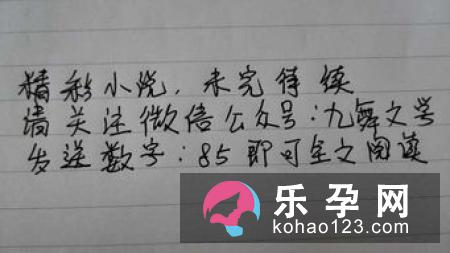 精彩小说,未完待续
请关注微信公众号:九舞文学
发送数字:85即可全文阅读
乐孕网
kohao123.com